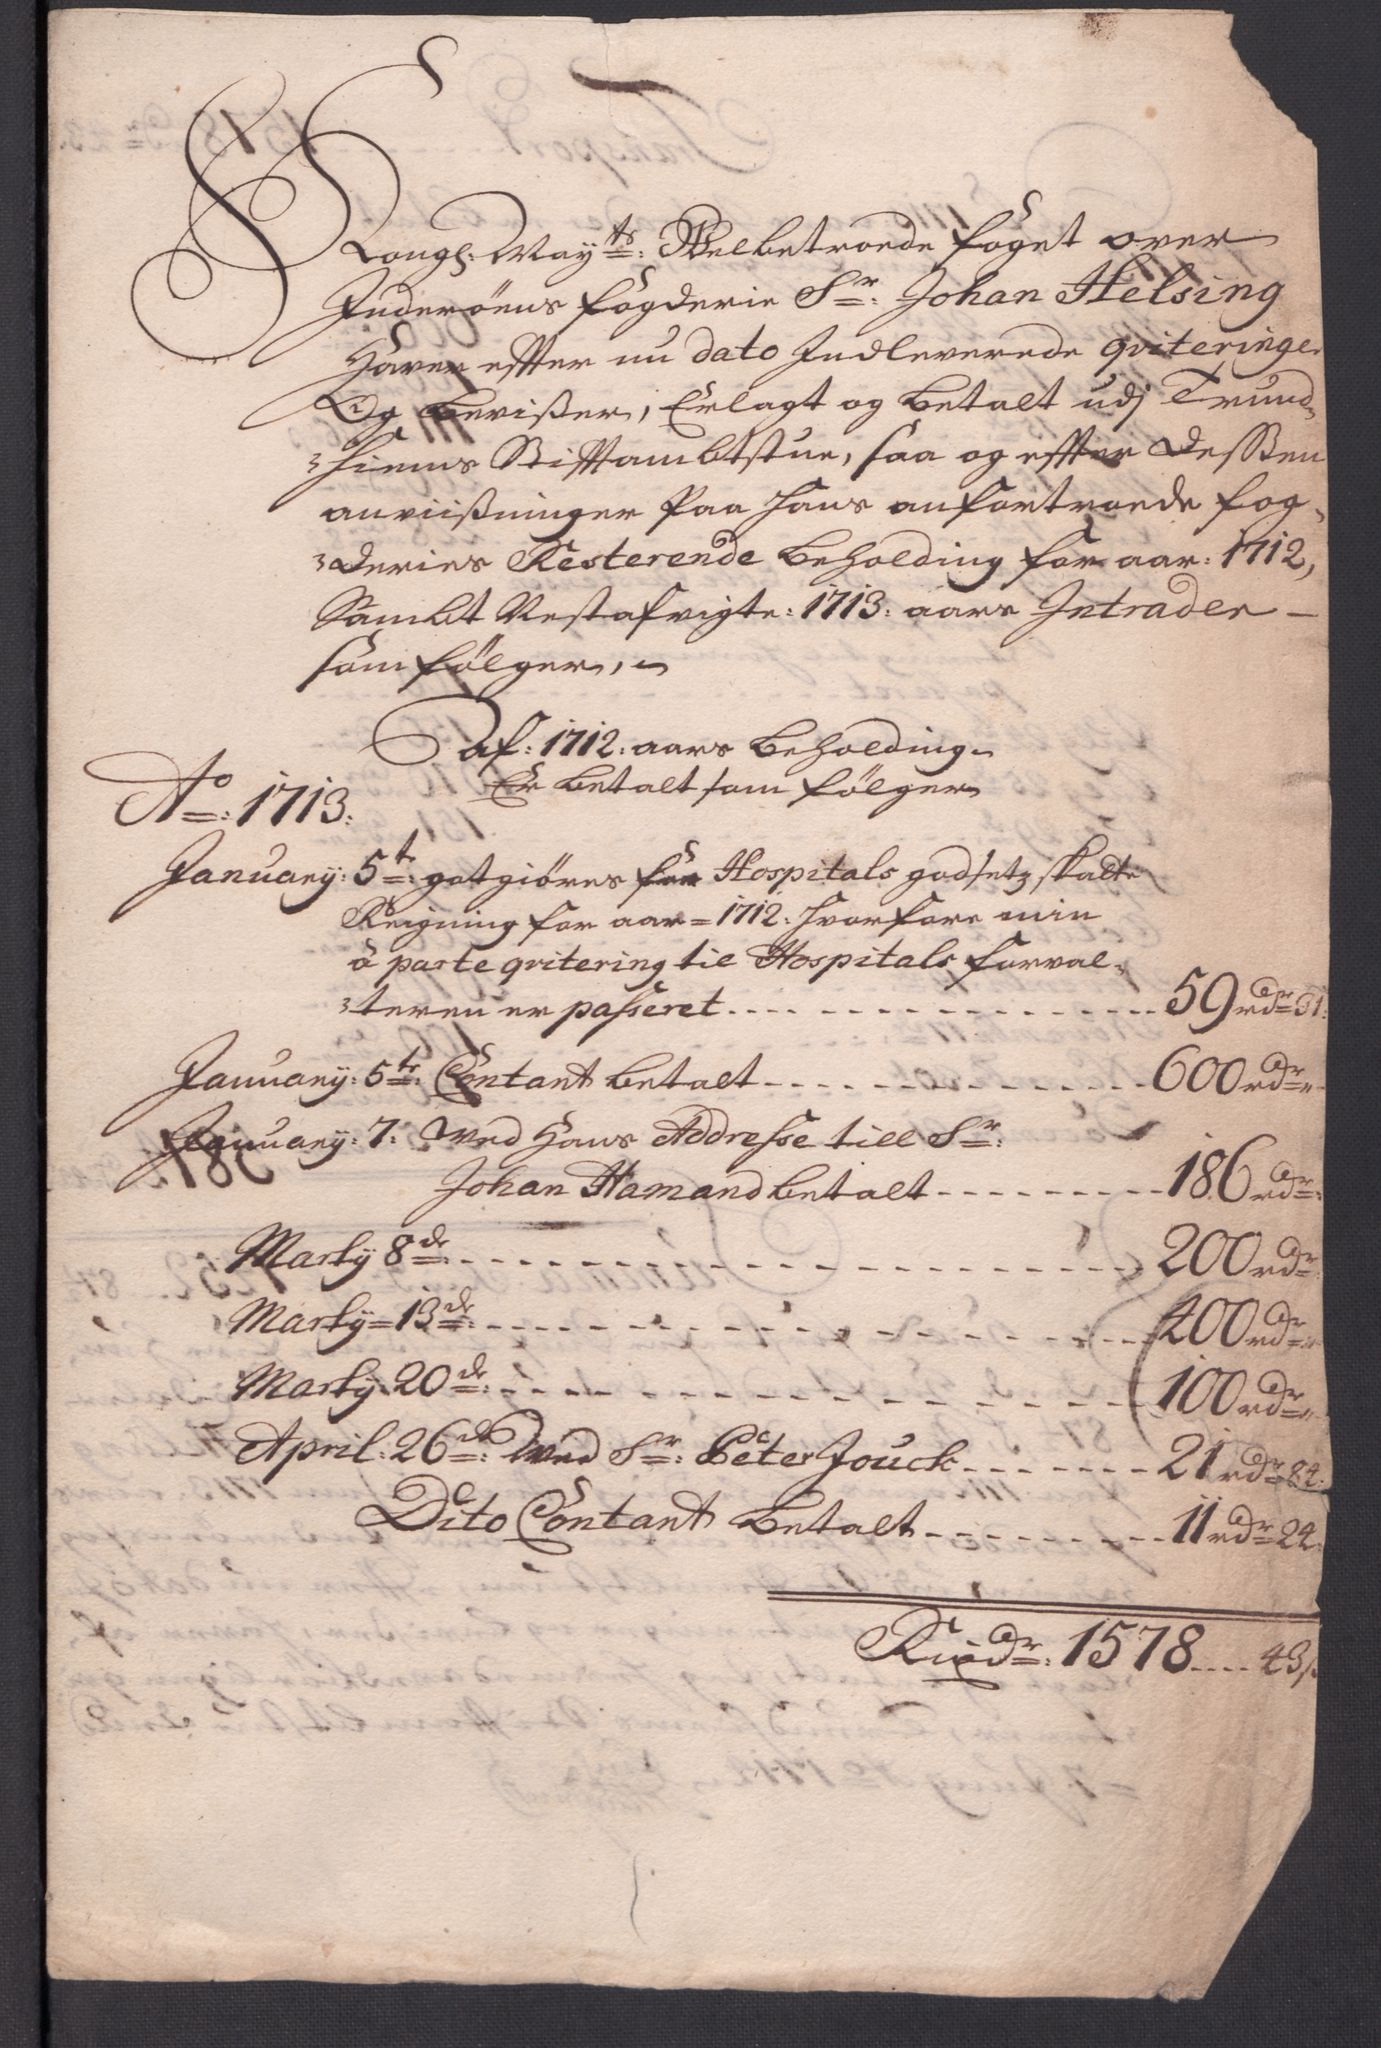 Kongl: May.ts: Welbetroede foget over
Inderöens fogderie Sr: Johan Helsing
Haver effter nu dato Indleverede qviteringer
Og bevißer, Erlagt og betalt udj Trund„
„hiems Stifftambtstue, saa og effter Deßen
anviißninger Paa hans anfortroede fog„
„deries Resterende beholding for aar: 1712,
Sambt Restafvigte: 1713: aars Intrader –
som fölger,
af: 1712: aars beholding
Er betalt som fölger
Ao: 1713:
January: 5te: gotgiöres for Hospitals godsetz skatte
Reigning for aar = 1712: hvorfore min
â parte qvitering til Hospitals forval„
„teren er passeret .... 59 rdr 31:
January: 5te: Contant betalt .... 600 rdr „
January: 7: Ved Hans Addresse till Sr:
Johan Hamand betalt .... 186 rdr:
Marty 8de: .... 200 rdr:
Marty = 13de: .... 400 rdr: „
Marty: 20de: .... 100 rdr „
April: 26de: Ved Sr: Peter Jouck .... 21 rdr 84:
Dito Contant betalt .... 11 rdr 24:
Rixdr: 1578 .... 43 s.